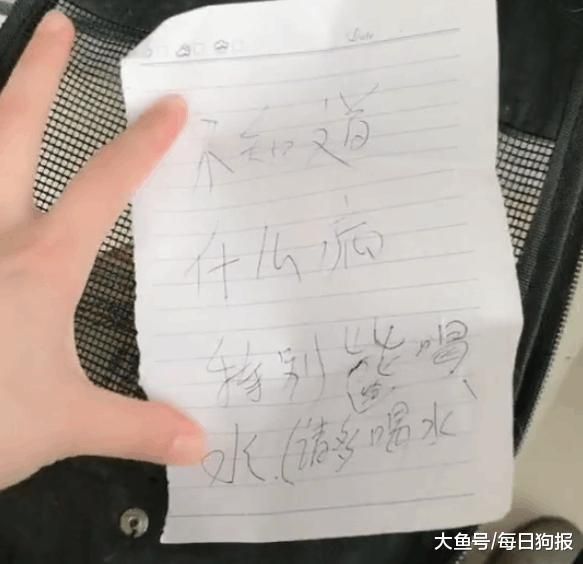 Date
不知道
什么病
特别能喝
水.(请多喝水
大鱼号/每日狗报